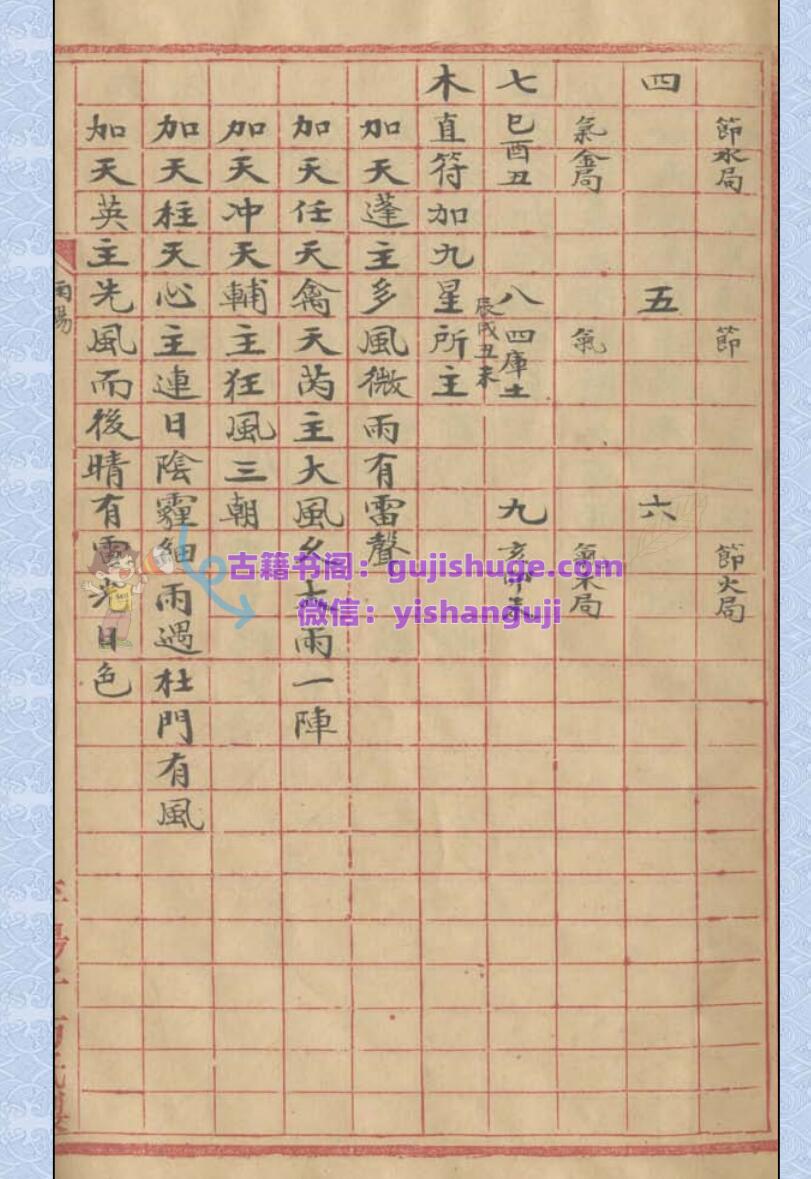 節水局 節 節火局
四 五 六
氣金局 氣 氣木局
七 巳酉丑 八 四庫土 辰戌丑未 九 亥卯未
木直符加九星所主
加天蓬主多風微雨有雷聲
加天任天禽天芮主大風雨一陣
加天冲天輔主狂風三朝
加天柱天心主連日陰霾細雨遇杜門有風
加天英主先風而後晴有日色
雨暘
古籍书阁：gujishuge.com
微信：yishanguji